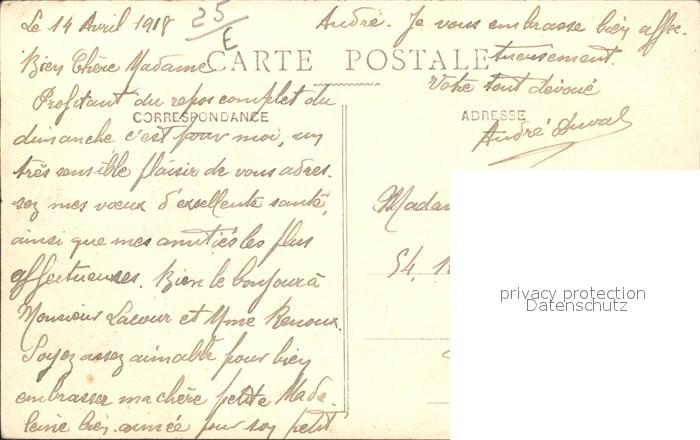 Le 14 Avril 1918
25
E
CARTE POSTALE
CORRESPONDANCE
Bien Chère Madame
Profitant du repos complet du
dimanche c'est pour moi, un
très sensible plaisir de vous adres-
sez mes vœux d'excellente santé,
ainsi que mes amitiés les plus
affectueuses. Bien le bonjour à
Monsieur Lacour et Mme Renoux.
Soyez assez aimable pour bien
embrasser ma chère petite Made-
leine bien aimée pour son petit
André. Je vous embrasse bien affec-
tueusement.
Votre tout dévoué
ADRESSE
André Duval
Madam
54, R
privacy protection
Datenschutz